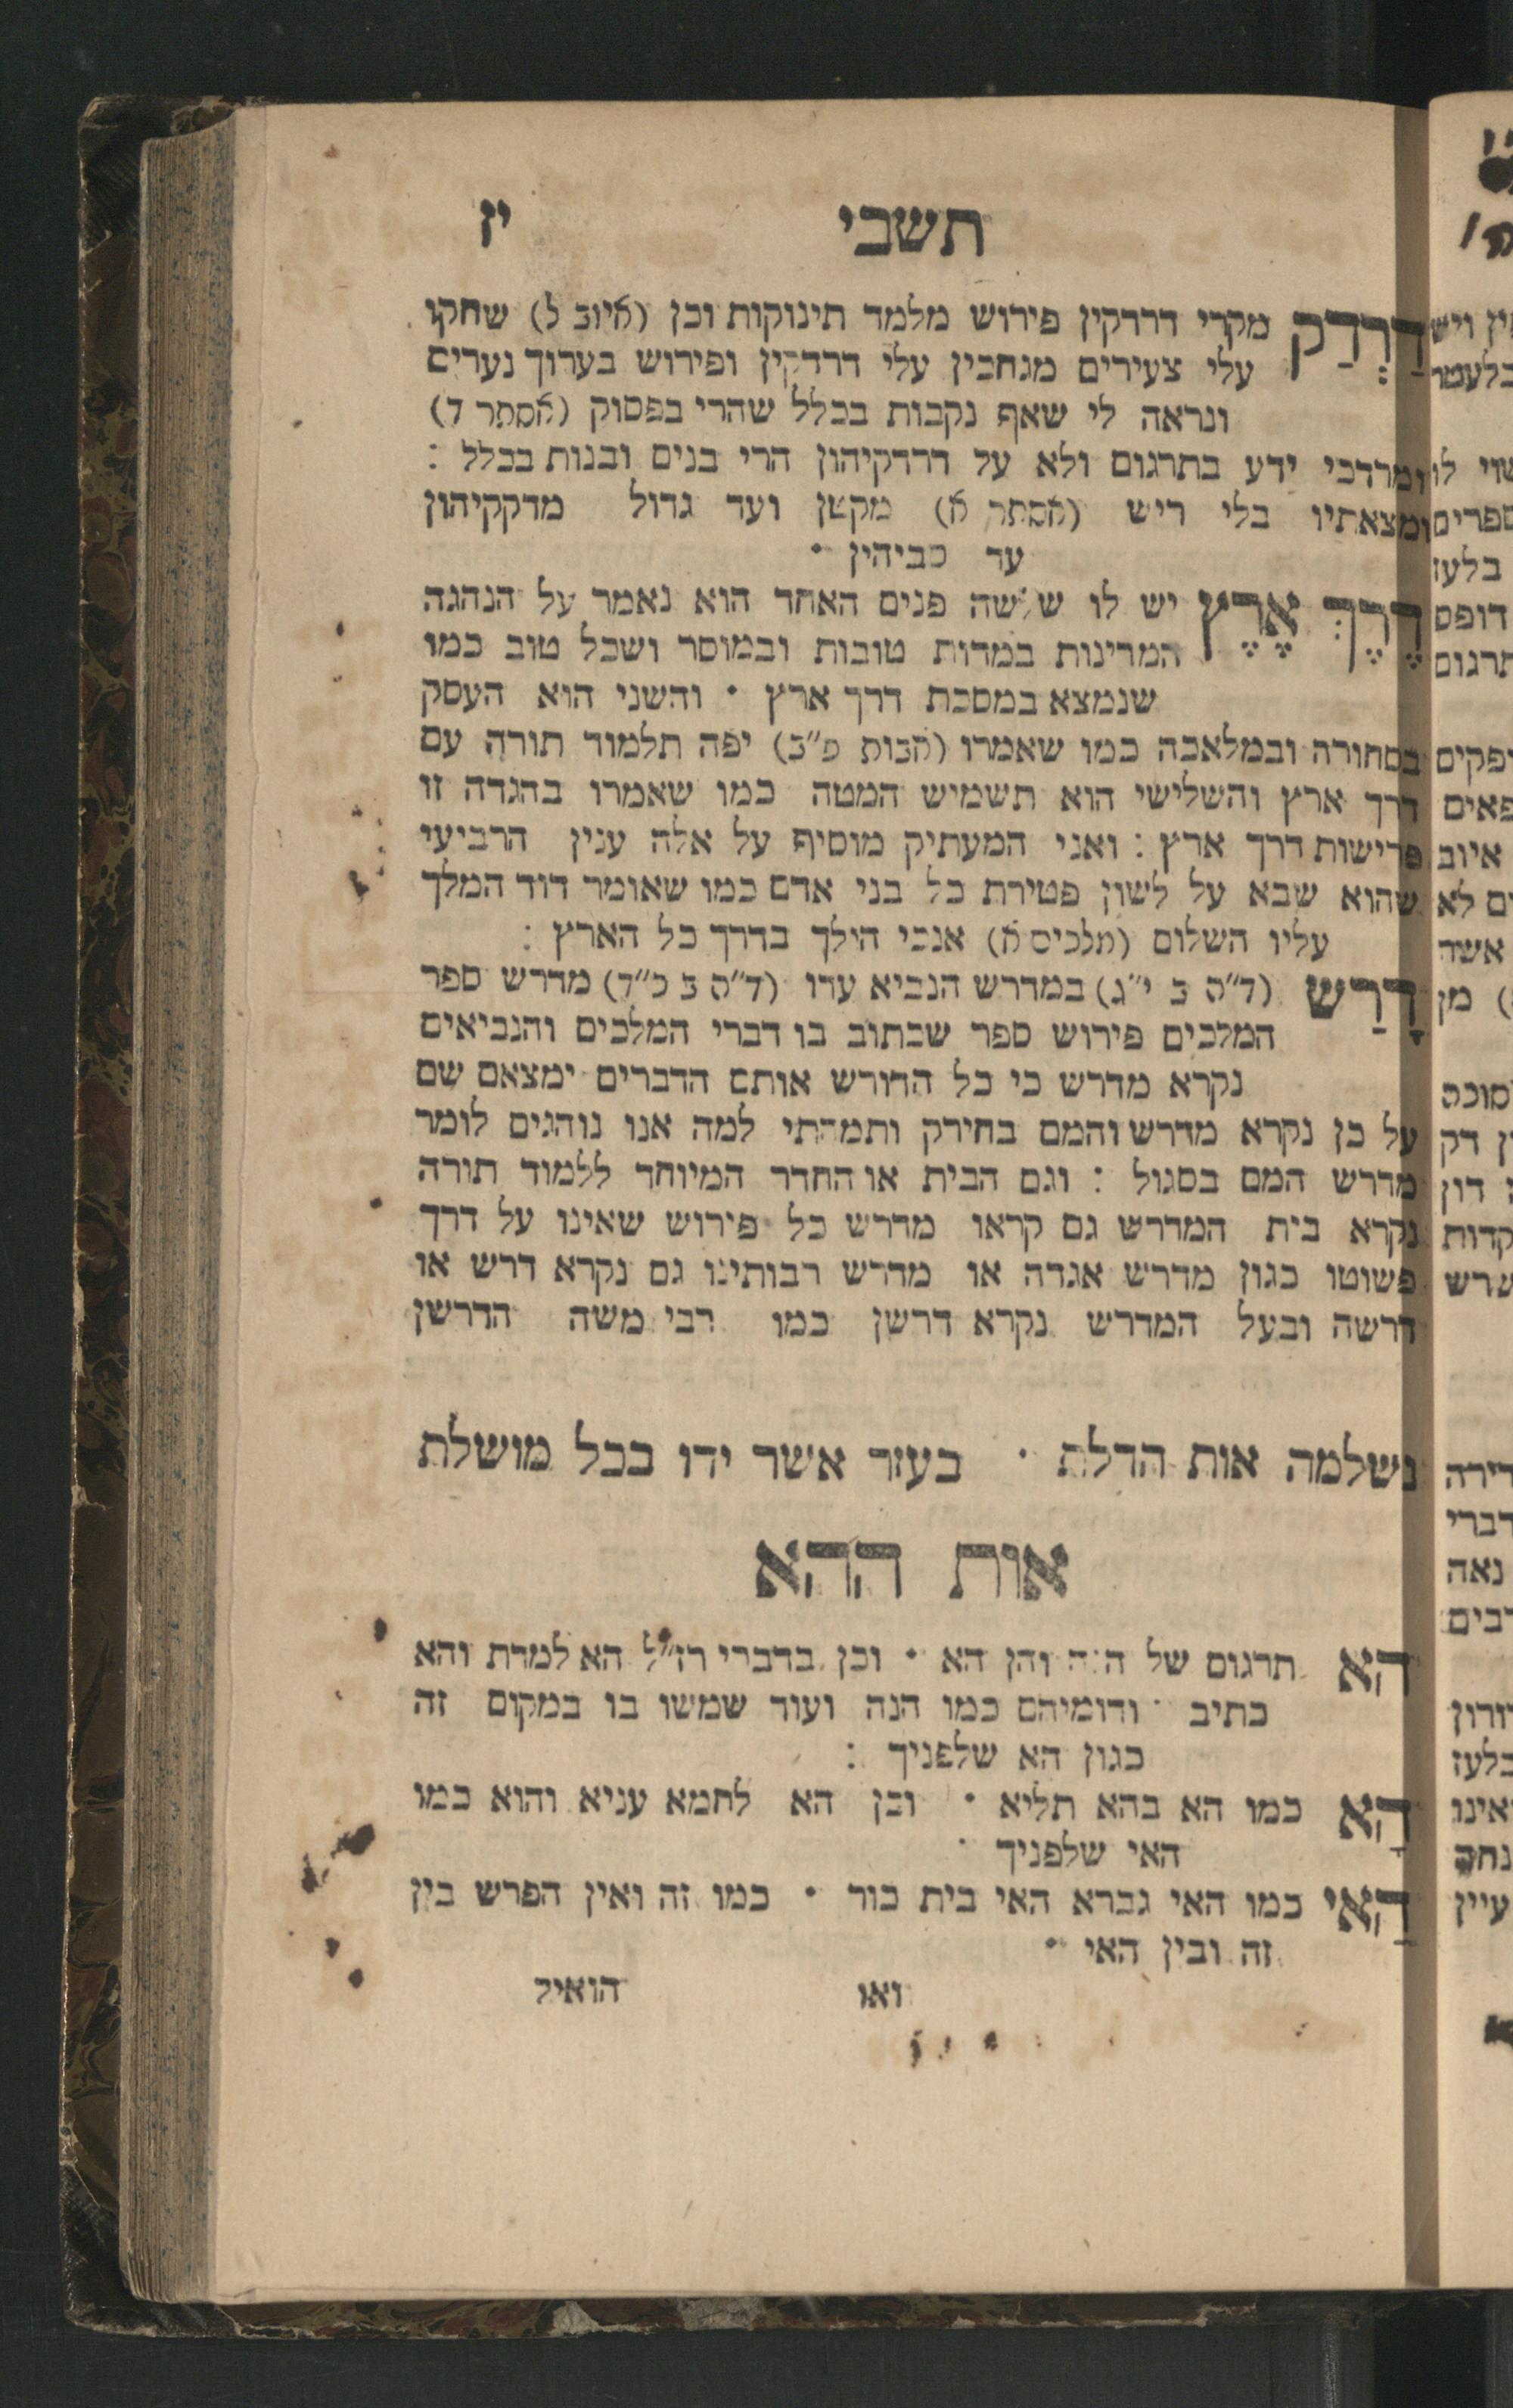 תשבי יז
דַרְדַק מקרי דרדקין פירוש מלמד תינוקות וכן (איוב ל) שחקו
עלי צעירים מגחכין עלי דרדקין ופירוש בערוך נערים
ונראה לי שאף נקבות בכלל שהרי בפסוק (אסתר ד)
ומרדכי ידע בתרגום ולא על דרדקיהון הרי בנים ובנות בכלל :
ומצאתיו בלי ריש (אסתר א) מקטן ועד גדול מדקקיהון
עד כביהין ·
דֶרֶךְ אֶרֶץ יש לו ששה פנים האחד הוא נאמר על הנהגה
המדינות במדות טובות ובמוסר ושכל טוב כמו
שנמצא במסכת דרך ארץ · והשני הוא העסק
בסחורה ובמלאכה כמו שאמרו (אבות פ״ב) יפה תלמוד תורה עם
דרך ארץ והשלישי הוא תשמיש המטה כמו שאמרו בהגדה זו
פרישות דרך ארץ : ואני המעתיק מוסיף על אלה ענין הרביעי
שהוא שבא על לשון פטירת כל בני אדם כמו שאומר דוד המלך
עליו השלום (מלכים א) אנכי הולך בדרך כל הארץ :
דָרַש (ד״ה ב י״ג) במדרש הנביא עדו (ד״ה ב כ״ד) מדרש ספר
המלכים פירוש ספר שכתוב בו דברי המלכים והנביאים
נקרא מדרש כי כל הדורש אותם הדברים ימצאם שם
על כן נקרא מדרש והמם בחירק ותמהתי למה אנו נוהגים לומר
מדרש המם בסגול : וגם הבית או החדר המיוחד ללמוד תורה
נקרא בית המדרש גם קראו מדרש כל פירוש שאינו על דרך
פשוטו כגון מדרש אגדה או מדרש רבותינו גם נקרא דרש או
דרשה ובעל המדרש נקרא דרשן כמו רבי משה הדרשן
נשלמה אות הדלת · בעזר אשר ידו בכל מושלת
אות ההא
הא תרגום של הנה והן הא · וכן בדברי רז״ל הא למדת והא
כתיב · ודומיהם כמו הנה ועוד שמשו בו במקום זה
כגון הא שלפניך :
הָא כמו הא בהא תליא · וכן הא לחמא עניא והוא כמו
האי שלפניך ·
הַאי כמו האי גברא האי בית כור · כמו זה ואין הפרש בין
זה ובין האי ·
ואו הואיל